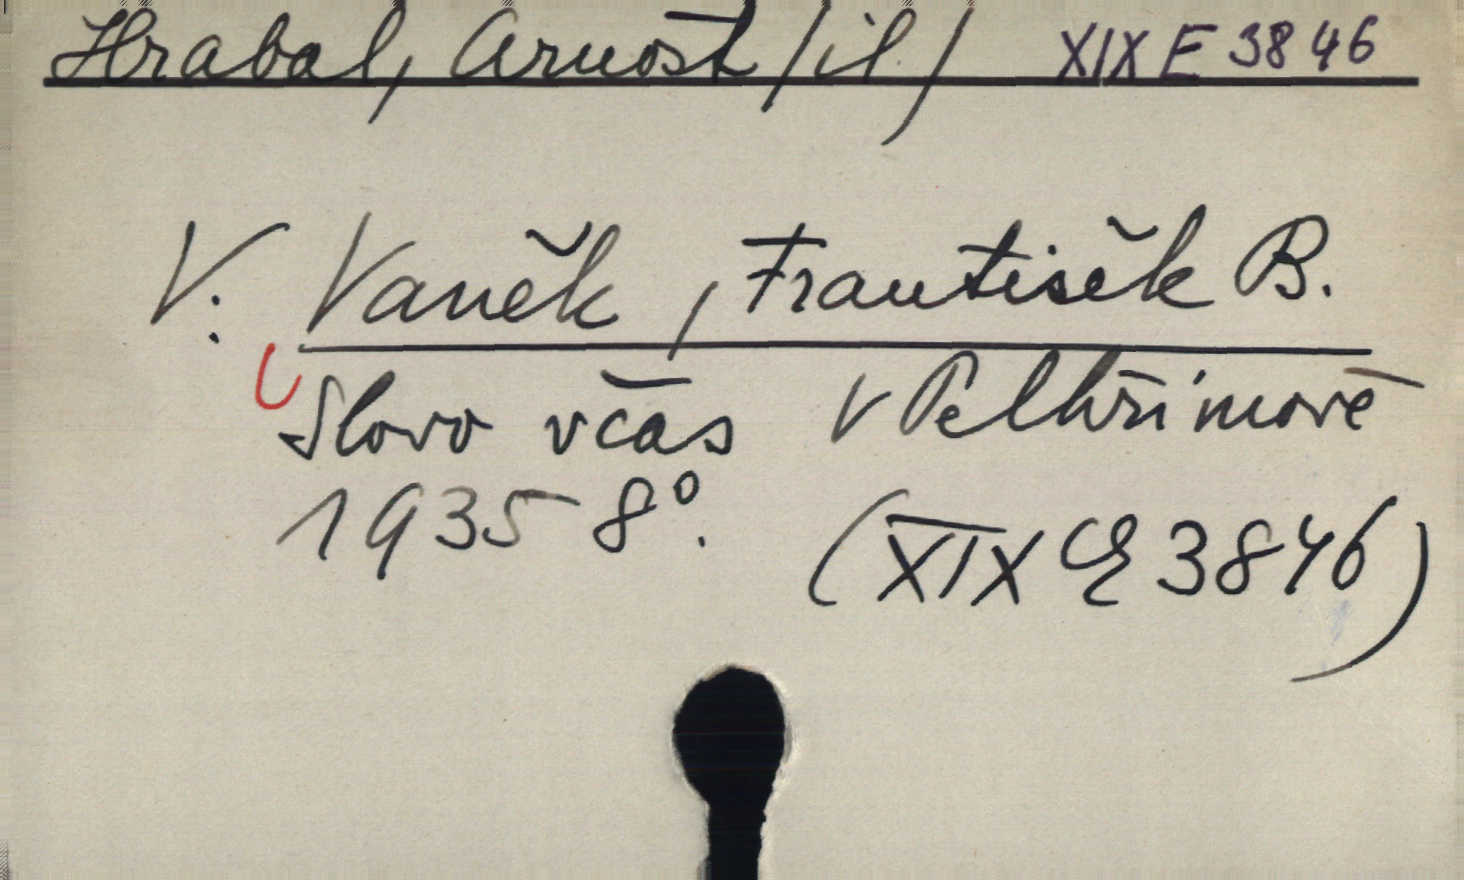 Hrabal, Arnošt /il./ XIX E 3846
V: Vaněk, František B.
Slovo včas V Pelhřimově
1935 8°. (XIX E 3846)